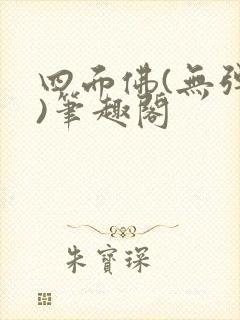 四面佛(無彈
)筆趣閣
朱寶琛